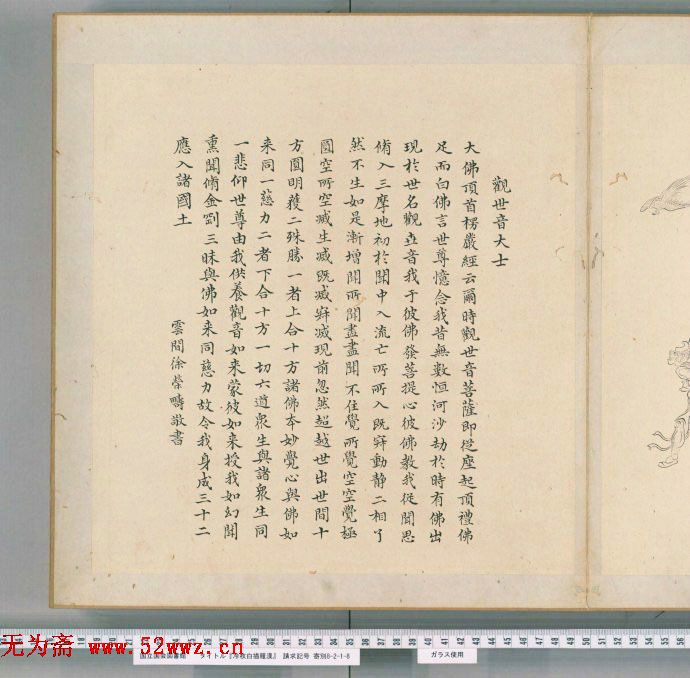 觀世音大士
大佛頂首楞嚴經云爾時觀世音菩薩即從座起頂禮佛
足而白佛言世尊憶念我昔無數恒河沙劫於時有佛出
現於世名觀世音我于彼佛發菩提心彼佛教我從聞思
脩入三摩地初於聞中入流亡所所入既寂動静二相了
然不生如是漸增聞所聞盡盡聞不住覺所覺空空覺極
圓空所空滅生滅既滅寂滅現前忽然超越世出世間十
方圓明獲二殊勝一者上合十方諸佛本妙覺心與佛如
来同一慈力二者下合十方一切六道衆生與諸衆生同
一悲仰世尊由我供養觀音如来蒙彼如来授我如幻聞
熏聞脩金剛三昧與佛如来同慈力故令我身成三十二
應入諸國土
雲間徐榮疇敬書
无为斋 www.52wwz.cn
国立国会図書館 タイトル『冷枚白描羅漢』 請求記号 寄別8-2-1-8
ガラス使用